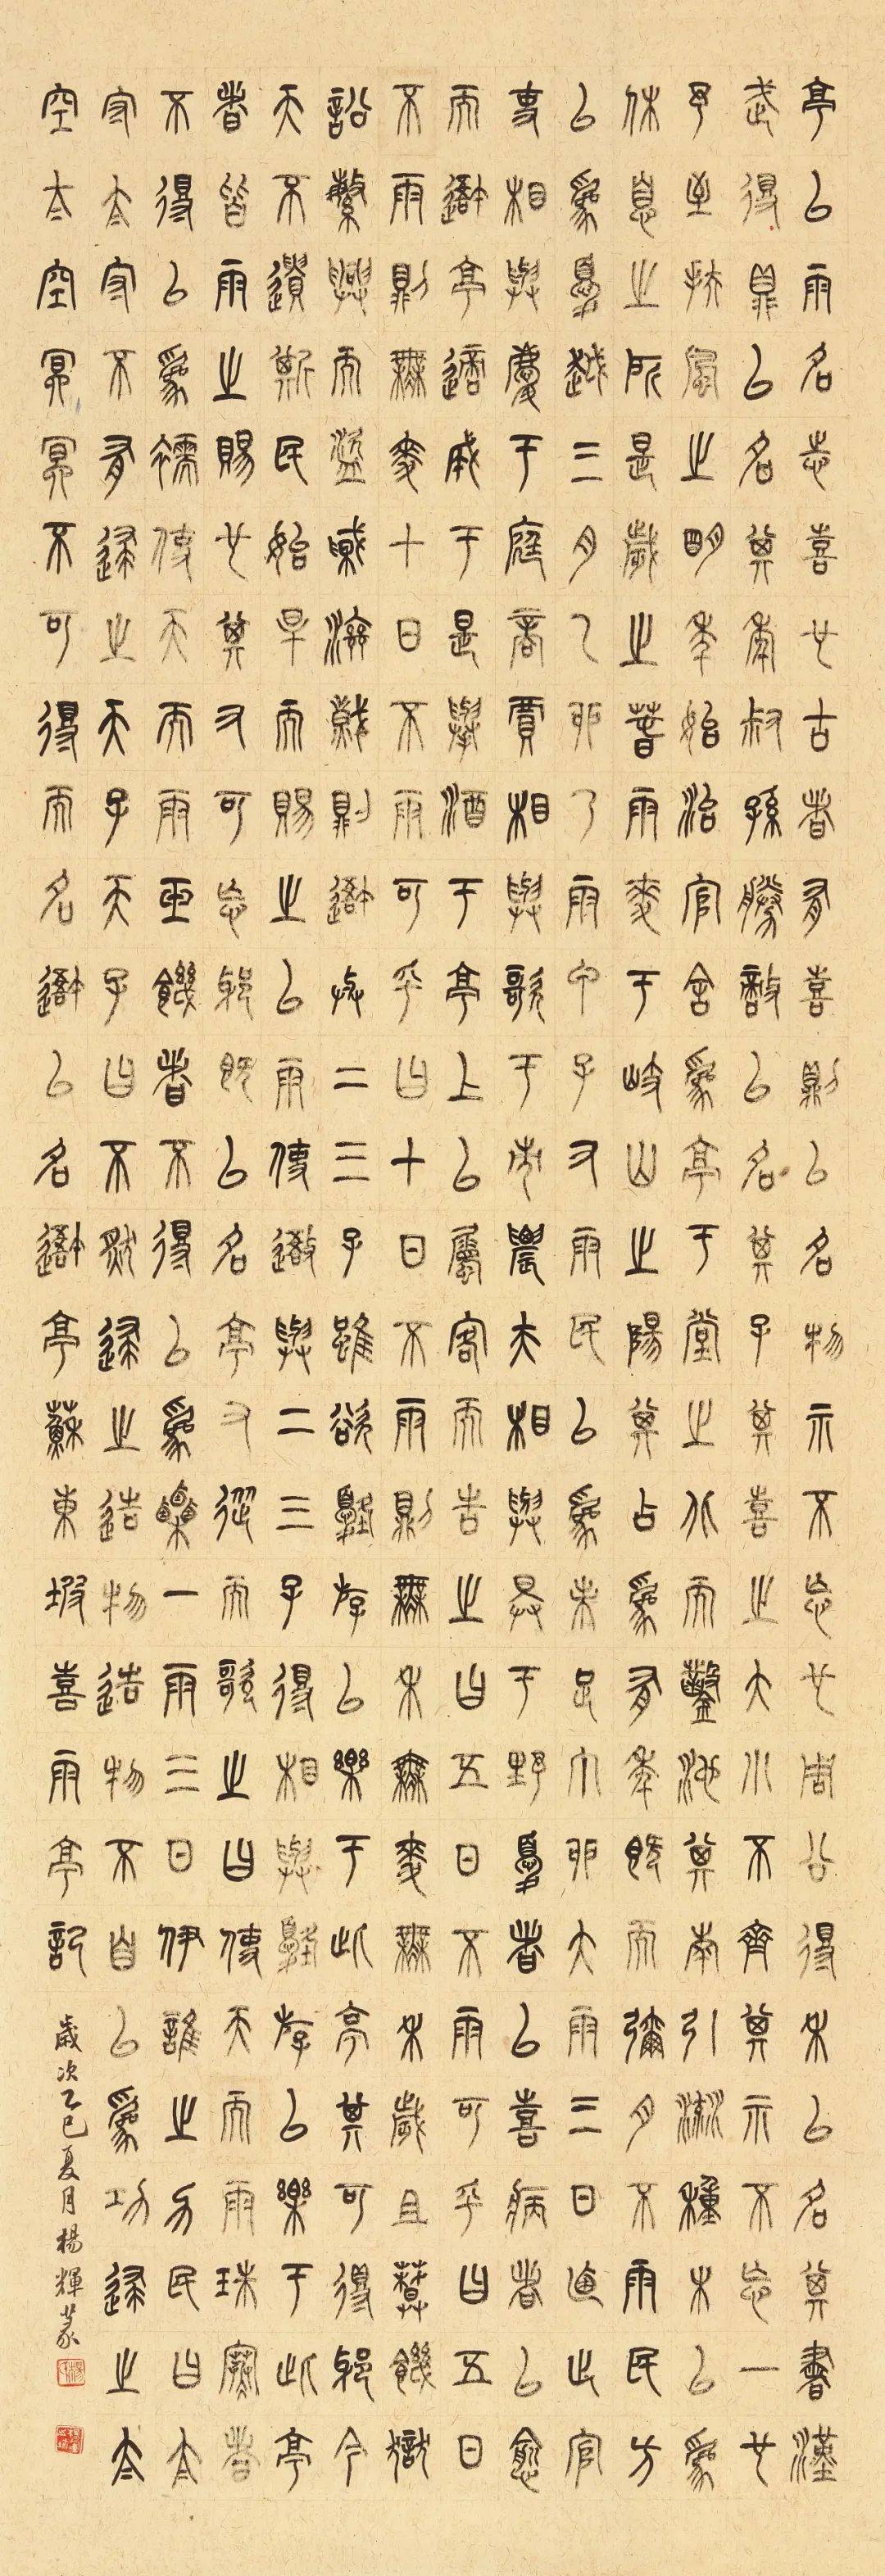 亭以雨名志喜也古者有喜則以名物示不忘也周公得禾以名其書漢
武得鼎以名其年叔孫勝敵以名其子其喜之大小不齊其示不忘一也
予至扶風之明年始治官舍為亭于堂之北而鑿池其南引流種木以為
休息之所是歲之春雨麥于岐山之陽其占為有年既而彌月不雨民方
以為憂越三月乙卯乃雨甲子又雨民以為未足丁卯大雨三日乃止官
吏相與慶于庭商賈相與歌于市農夫相與忭于野憂者以喜病者以愈
而吾亭適成于是舉酒于亭上以屬客而告之曰五日不雨可乎曰五日
不雨則無麥十日不雨可乎曰十日不雨則無禾無麥無禾歲且薦饑獄
訟繁興而盜賊滋熾則吾與二三子雖欲優游以樂于此亭其可得耶今
天不遺斯民始旱而賜之以雨使吾與二三子得相與優游以樂于此亭
者皆雨之賜也其又可忘耶既以名亭又從而歌之曰使天而雨珠寒者
不得以為襦使天而雨玉饑者不得以為粟一雨三日伊誰之力民曰太
守太守不有歸之天子天子曰不然歸之造物造物不自以為功歸之太
空太空冥冥不可得而名吾以名吾亭蘇東坡喜雨亭記
歲次乙巳夏月楊輝篆